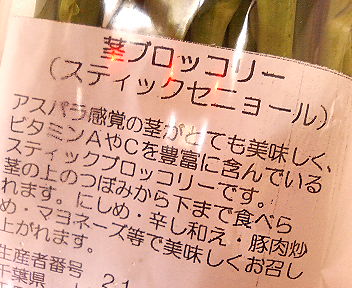 茎ブロッコリー
(スティックセニョール)
アスパラ感覚の茎がとても美味しく、
ビタミンAやCを豊富に含んでいる
スティックブロッコリーです。
茎の上のつぼみから下まで食べら
れます。にしめ・辛し和え・豚肉炒
め・マヨネーズ等で美味しくお召し
上がれます。
生産者番号 21
千葉県